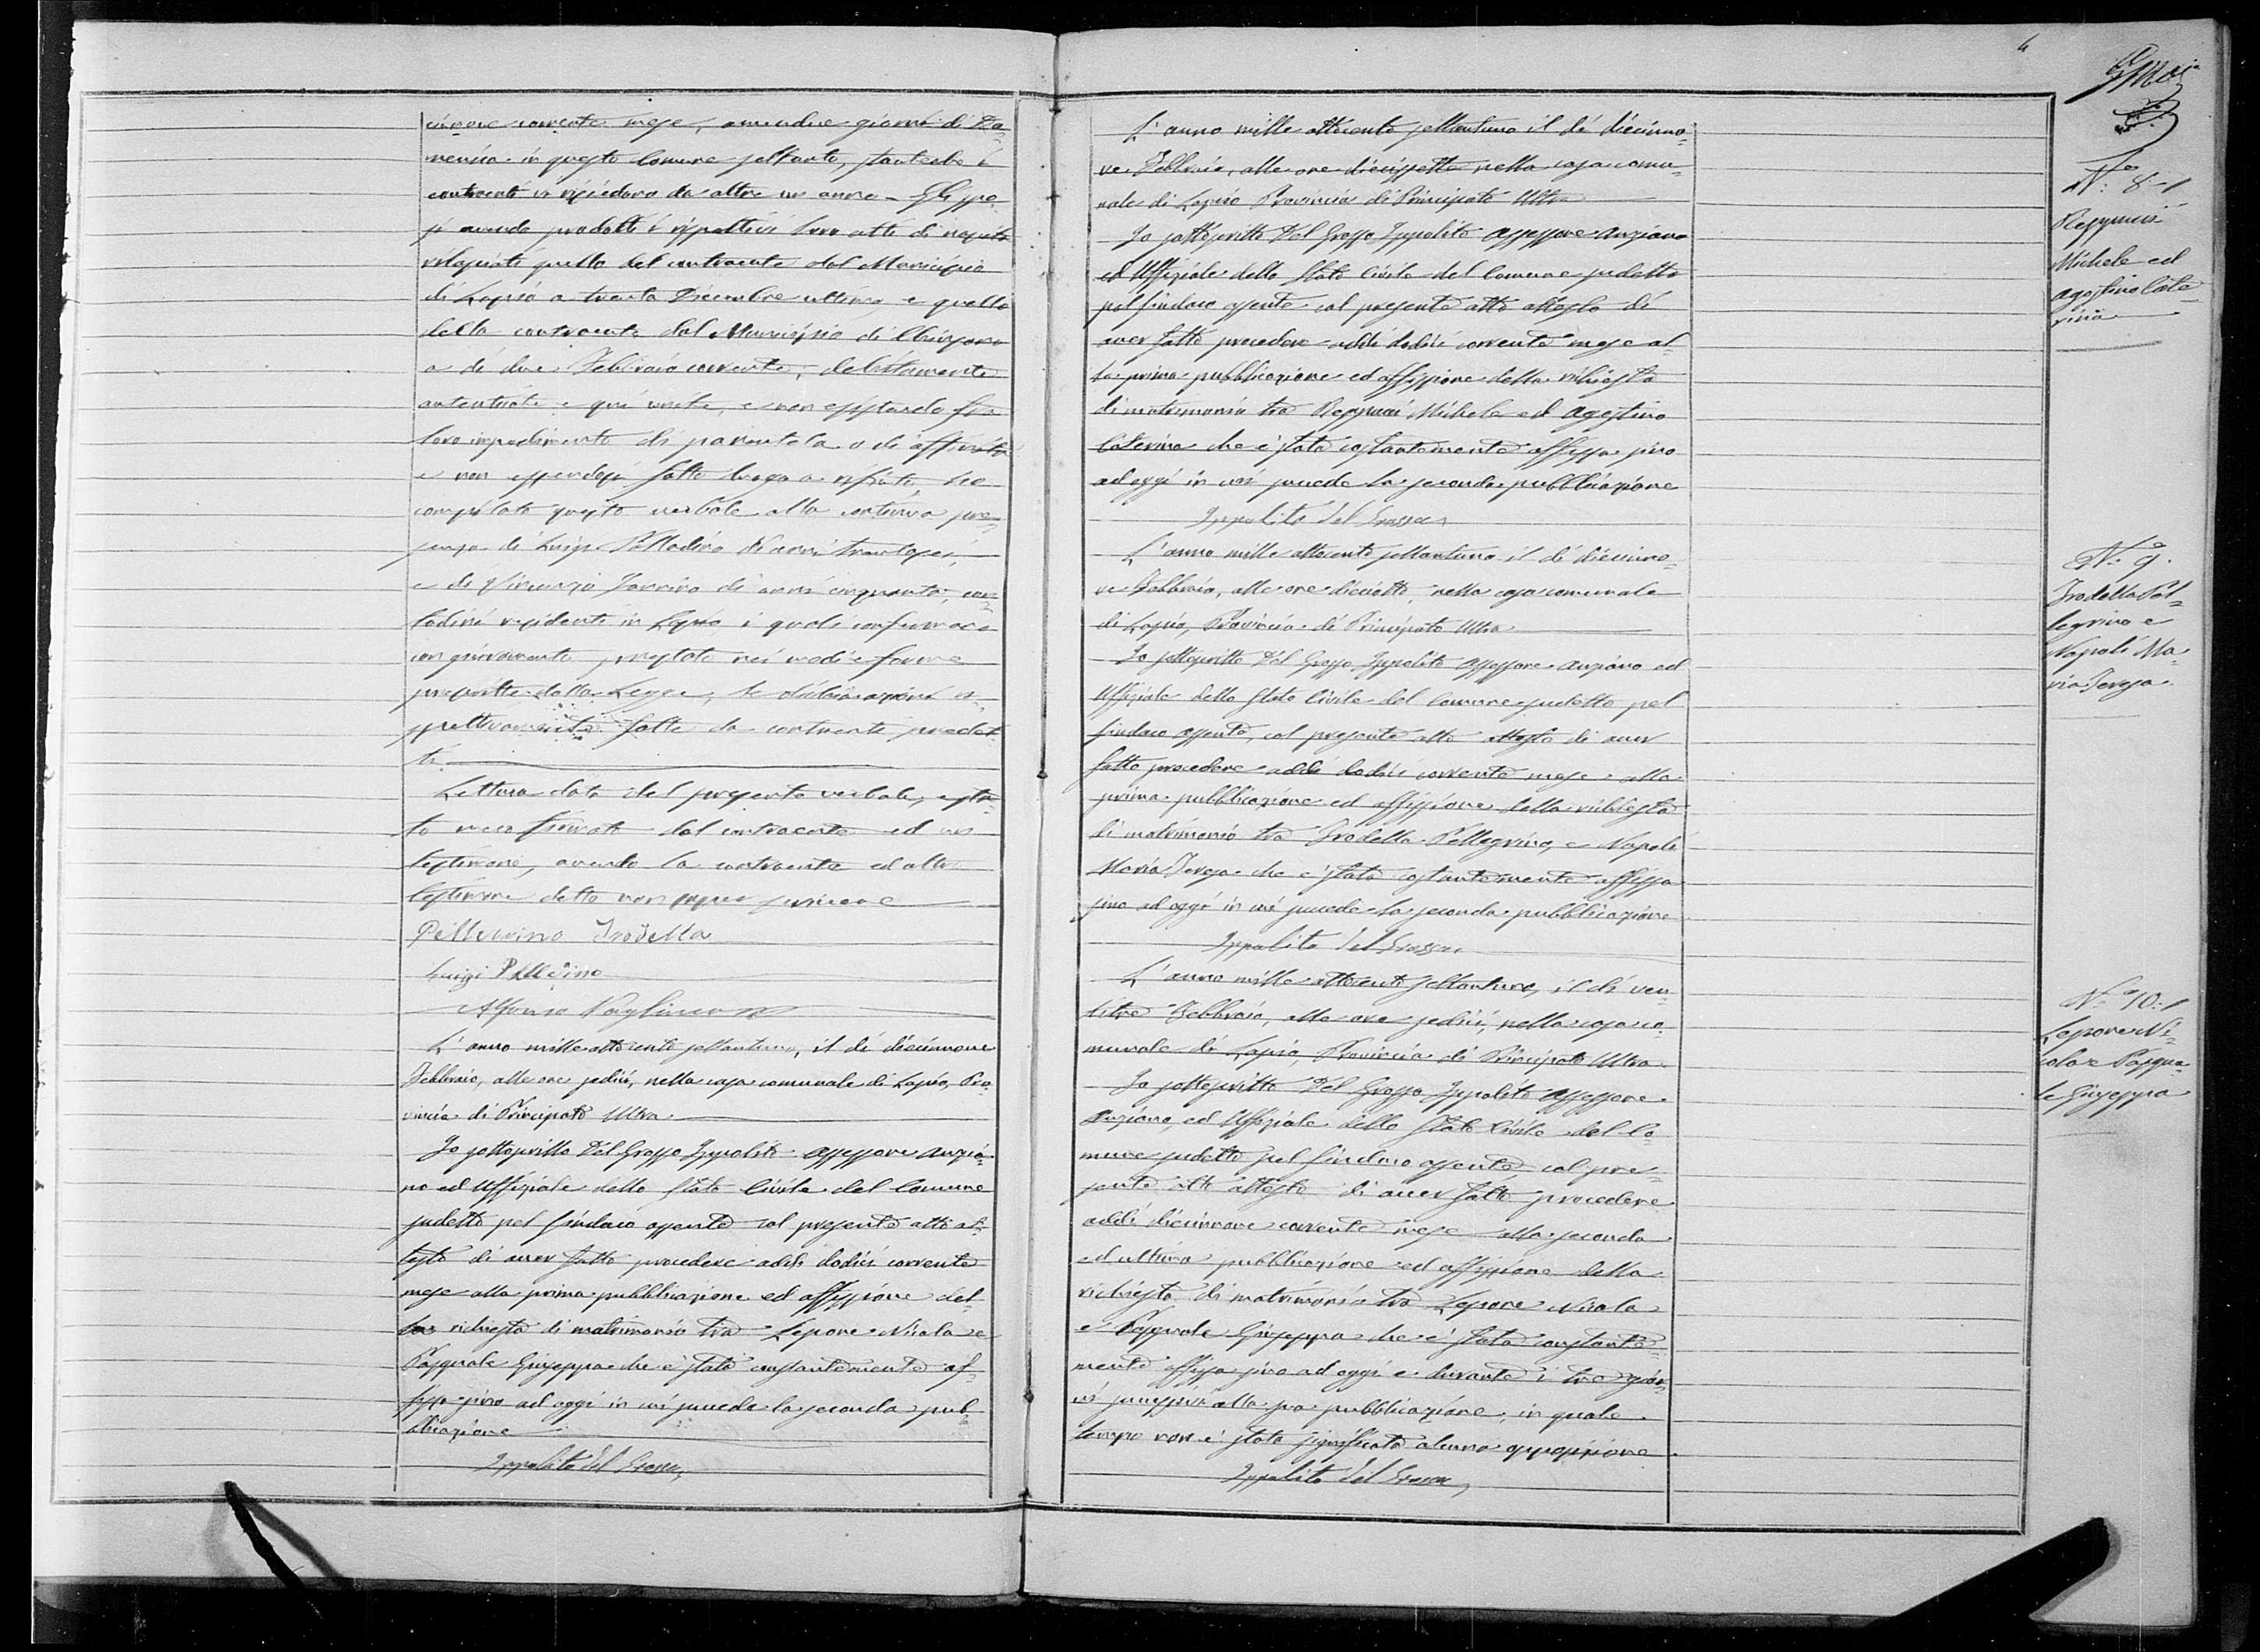 corrente mese, amendue giorni di Do-
menica in questo Comune soltanto, stanteche i
contraenti vi risiedono da oltre un anno. Gli spo-
si avendo prodotti i rispettivi loro atti di nascita
rilasciati quello del contraente dal Municipio
di Lapio a trenta Dicembre ultimo, e quello
della contraente dal Municipio di
a dì due Febbraio corrente, debitamente
autenticati e qui uniti, e non esistendo fra
loro impedimento di parentela o di affinità
e non essendosi fatto luogo a rifiuto, ho
compilato questo verbale alla continua pre-
senza di Luigi Palladino d'anni trentasei,
e di Vincenzo Iannino di anni cinquanta, con-
tadini residenti in Lapio i quali confermano
con giuramento prestato nei modi e forme
prescritte dalla Legge, le dichiarazioni ri-
spettivamente fatte da contraenti predet-
ti
Lettura data del presente verbale, è sta-
to meco firmato dal contraente ed un
testimone, avendo la contraente ed altro
testimone detto non saper scrivere
Pellecrino Irodella
Luigi Palladino
Alfonso
L'anno mille ottocento settantuno, il dì diecinnove
Febbraio, alle ore sedici, nella casa comunale di Lapio, Pro-
vincia di Principato Ultra
Io sottoscritto Del Grosso Ippolito assessore anzia-
no ed Uffiziale dello Stato Civile del Comune
sudetto pel Sindaco assente col presente atto at-
testo di aver fatto procedere addì dodici corrente
mese alla prima pubblicazione ed affissione del-
la richiesta di matrimonio tra Lepore Nicola e
Pasquale Giuseppa che è stata costantemente af-
fissa sino ad oggi in cui succede la seconda pub-
blicazione
Ippolito del Grosso
4
L'anno mille ottocento settantuno il dì diecinno-
ve Febbraio, alle ore diecissette nella casa comu-
nale di Lapio Provincia di Principato Ultra
Io sottoscritto Del Grosso Ippolito assessore anziano
ed Uffiziale dello Stato Civile del Comune sudetto
pel Sindaco assente col presente atto attesto di
aver fatto procedere addì dodici corrente mese al-
la prima pubblicazione ed affissione della richiesta
di matrimonio tra Reppucci Michele ed Agostino
Caterina che è stata costantemente affissa sino
ad oggi in cui succede la seconda pubblicazione
Ippolito del Grosso
L'anno mille ottocento settantuno il dì diecinno-
ve Febbraio, alle ore dieciotto, nella casa comunale
di Lapio, Provincia di Principato Ultra
Io sottoscritto Del Grosso Ippolito assessore anziano ed
Uffiziale dello Stato Civile del Comune sudetto pel
Sindaco assente, col presente atto attesto di aver
fatto procedere addì dodici corrente mese alla
prima pubblicazione ed affissione della richiesta
di matrimonio tra Irodella Pellegrino, e Napoli
Maria Teresa che è stata costantemente affissa
sino ad oggi in cui succede la seconda pubblicazione
Ippolito del Grosso
L'anno mille ottocento settantuno, il dì ven-
titre Febbraio, alle ore sedici, nella casa co-
munale di Lapio, Provincia di Principato Ultra
Io sottoscritto Del Grosso Ippolito assessore
anziano, ed Uffiziale dello Stato Civile del Co-
mune sudetto pel Sindaco assente, col pre-
sente atto attesto di aver fatto procedere
addì diecinnove corrente mese alla seconda
ed ultima pubblicazione ed affissione della
richiesta di matrimonio tra Lepore Nicola
e Pasquale Giuseppa che è stata costante-
mente affissa sino ad oggi e durante i tre gior-
ni successivi alla sua pubblicazione, in quale
tempo non è stata significata alcuna opposizione
Ippolito del Grosso
N.° 8
Reppucci
Michele ed
Agostino Cate-
rina
N.° 9.
Irodella Pel-
legrino e
Napoli Ma-
ria Teresa
N.° 10
Lepore Ni-
cola e Pasqua-
le Giuseppa